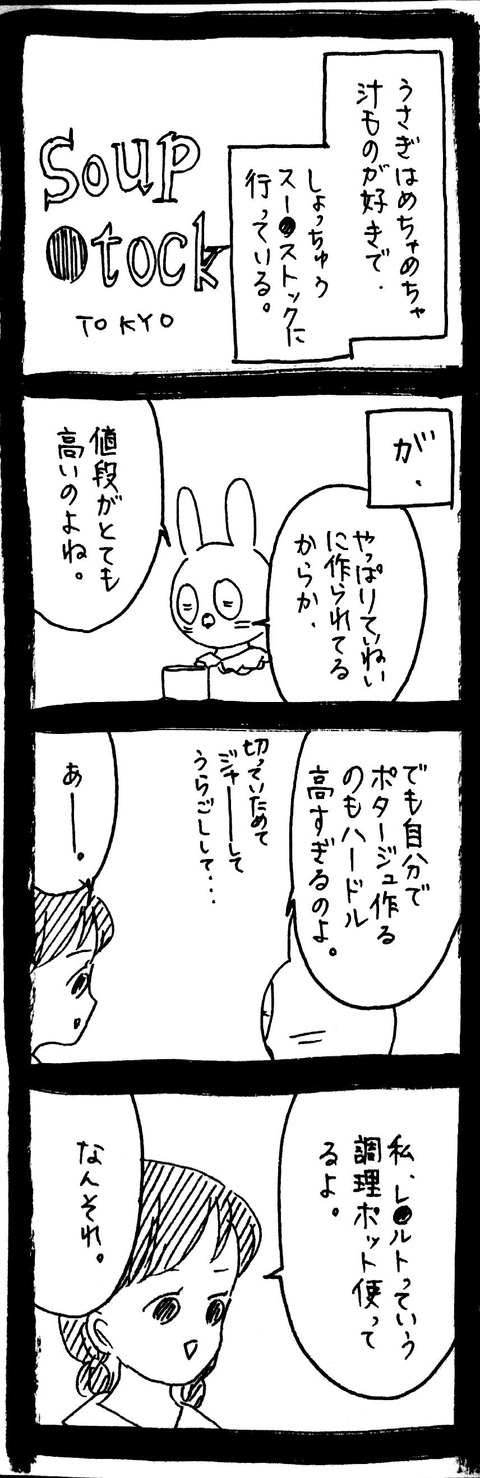 うさぎはめちゃめちゃ
汁ものが好きで、
しょっちゅう
スー●ストックに
行っている。
Soup
●tock
TOKYO
が、
やっぱりていねい
に作られてる
からか、
値段がとても
高いのよね。
でも自分で
ポタージュ作る
のもハードル
高すぎるのよ。
切っていためて
ジャーーして
うらごしして・・・
あー。
私、レ●ルトっていう
調理ポット使って
るよ。
なんそれ。